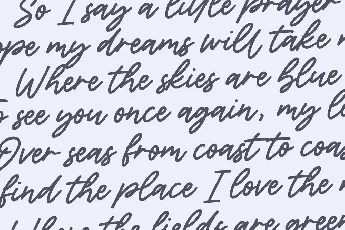 So I say a little prayer
ope my dreams will take
Where the skies are blue
see you once again, my
Over seas from coast to coas
find the place I love the
Where the fields are green